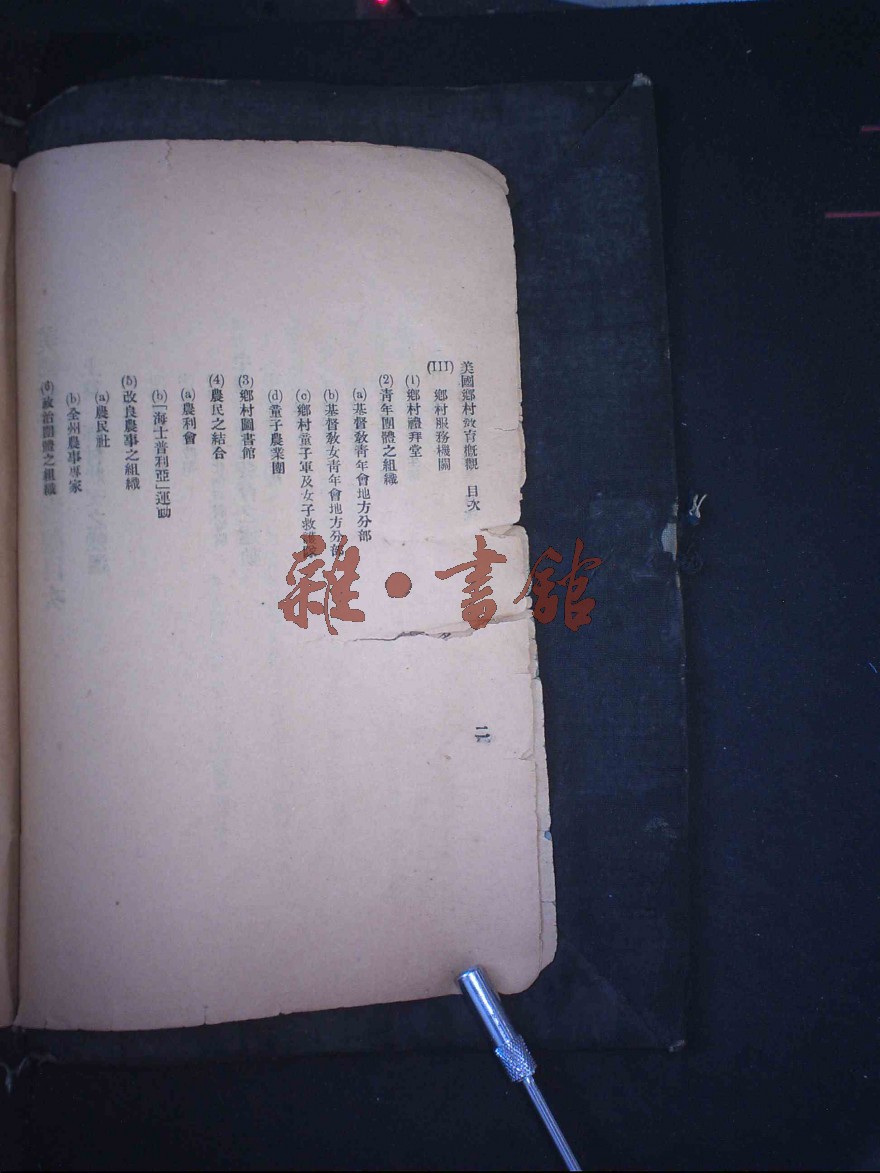 美國鄉村教育概觀　目次
二
(III)　鄉村服務機關
(1)鄉村禮拜堂
(2)青年團體之組織
(a)基督教青年會地方分部
(b)基督教女青年會地方分部
(c)鄉村童子軍及女子救護隊
(d)童子農業團
(3)鄉村圖書館
(4)農民之結合
(a)農利會
(b)「海士普利亞」運動
(5)改良農事之組織
(a)農民社
(b)全州農事專家
(6)政治團體之組織
雜・書館